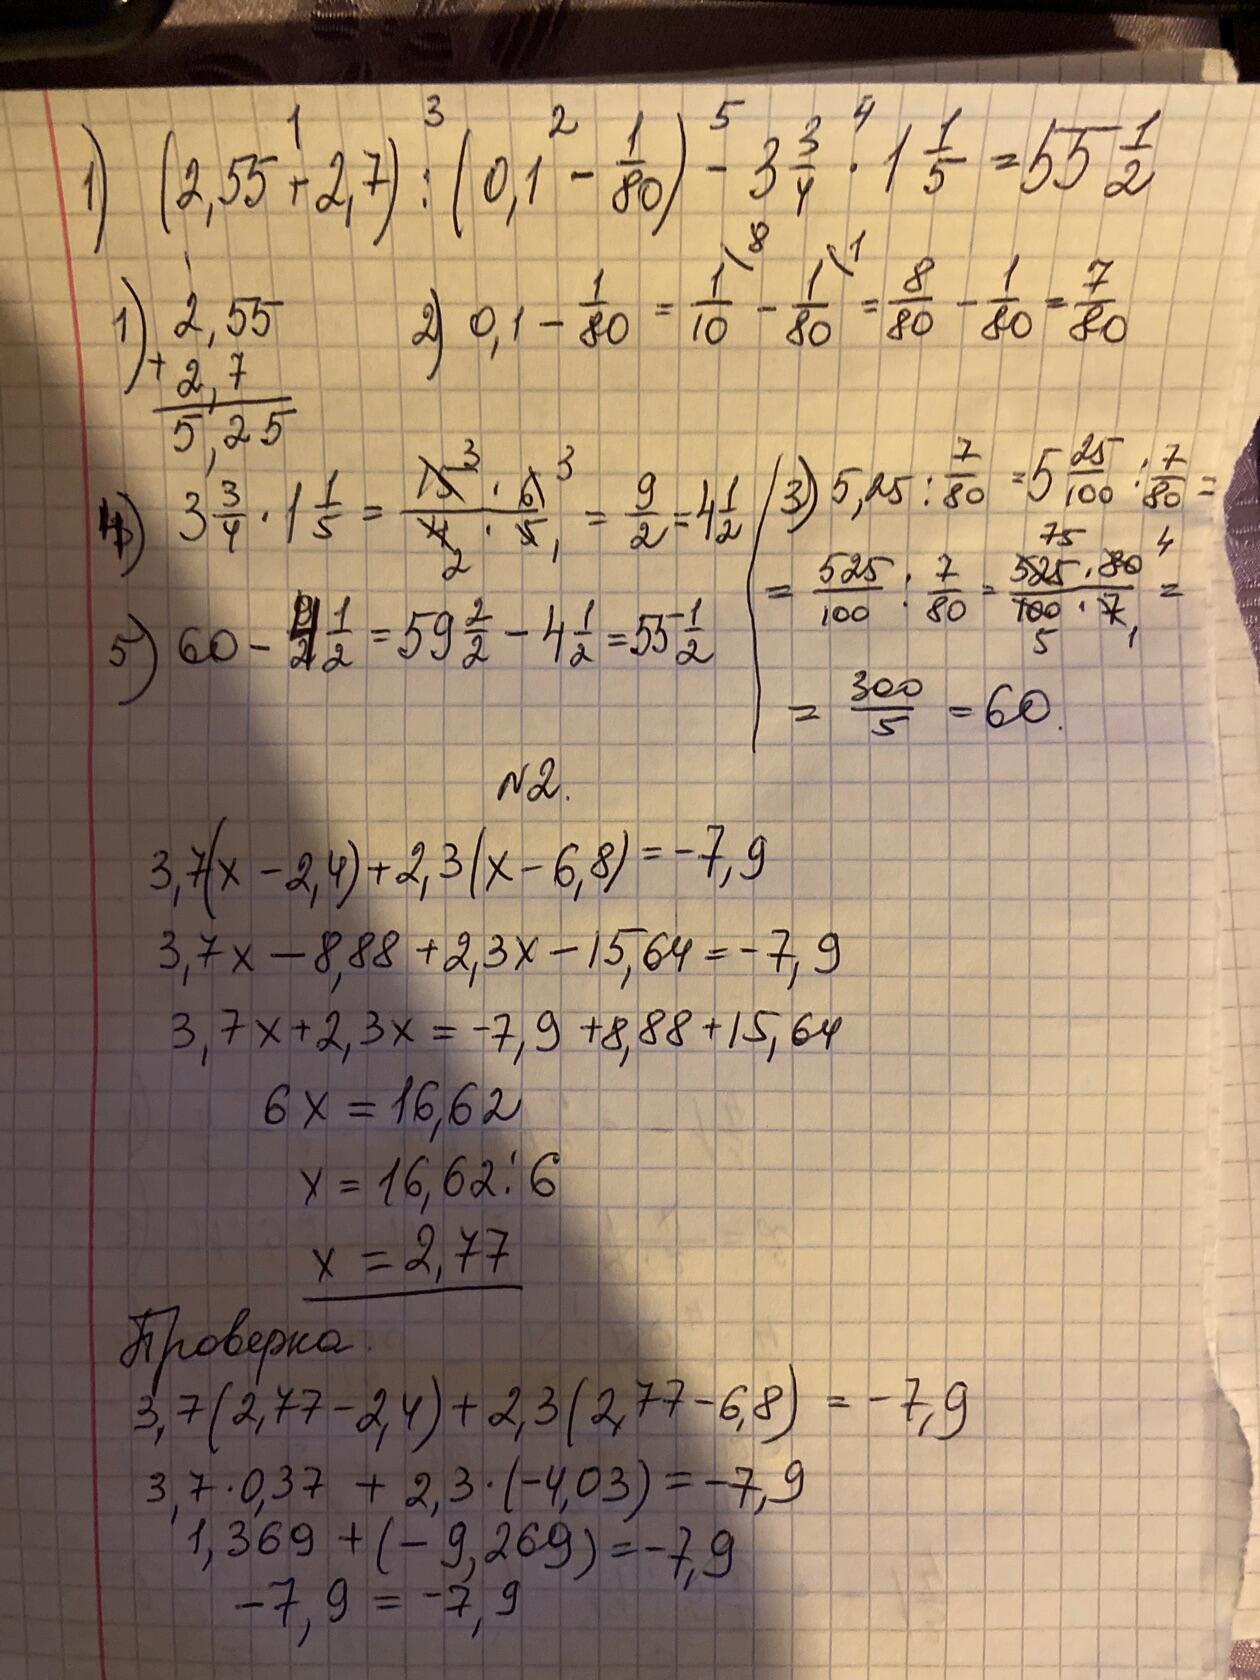 1) (2,55 + 2,7) : (0,1 - 1/80) - 3 3/4 · 1 1/5 = 55 1/2
1) 2,55 + 2,7 5,25
2) 0,1 - 1/80 = 1/10 (8 - 1/80 (1 = 8/80 - 1/80 = 7/80
4) 3 3/4 · 1 1/5 = 15 3 · 6 3 / 4 2 · 5 1 = 9/2 = 4 1/2
5) 60 - 4 1/2 = 59 2/2 - 4 1/2 = 55 1/2
3) 5,25 : 7/80 = 5 25/100 : 7/80 =
= 525/100 : 7/80 = 75 525 · 80 4 / 100 5 · 7 1 =
= 300/5 = 60.
N2.
3,7(x - 2,4) + 2,3(x - 6,8) = -7,9
3,7x - 8,88 + 2,3x - 15,64 = -7,9
3,7x + 2,3x = -7,9 + 8,88 + 15,64
6x = 16,62
x = 16,62 : 6
x = 2,77
Проверка.
3,7(2,77 - 2,4) + 2,3(2,77 - 6,8) = -7,9
3,7 · 0,37 + 2,3 · (-4,03) = -7,9
1,369 + (-9,269) = -7,9
-7,9 = -7,9